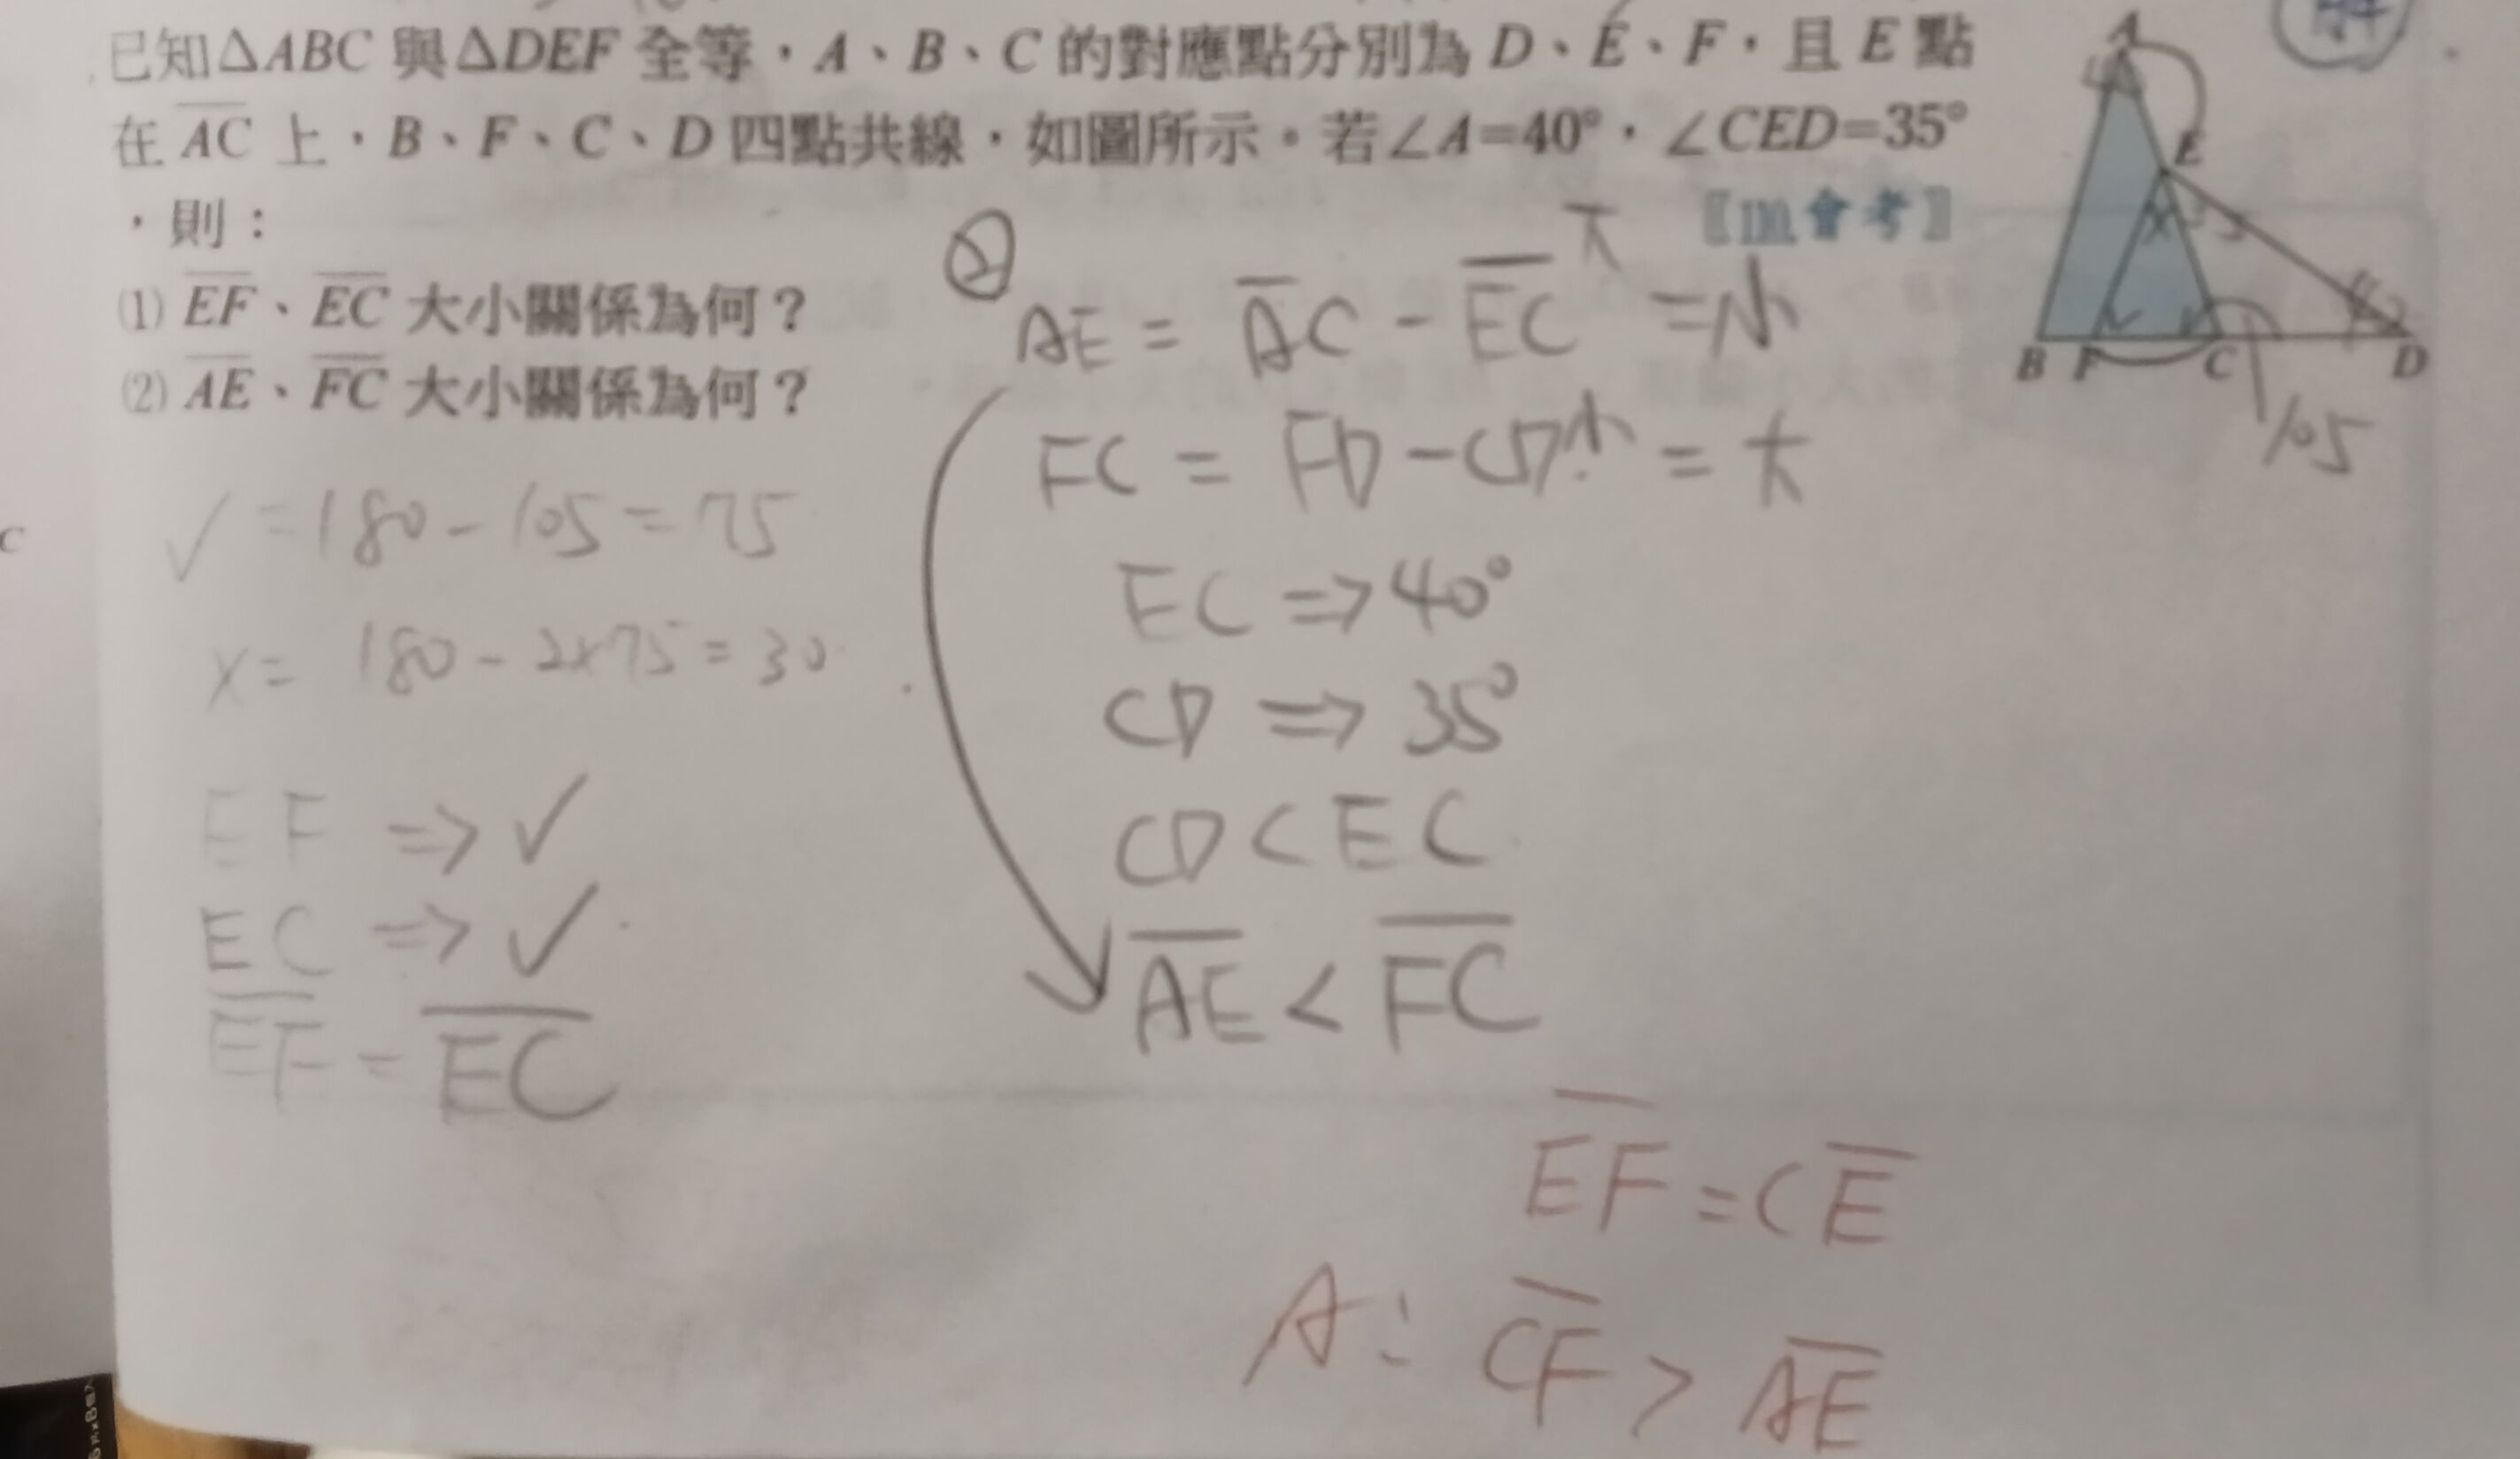 已知△ABC 與△DEF 全等，A、B、C 的對應點分別為 D、E、F，且 E 點
在 AC 上，B、F、C、D 四點共線，如圖所示。若∠A=40°，∠CED=35°
，則：
〖110.會考〗
(1) EF、EC 大小關係為何？
(2) AE、FC 大小關係為何？
A
E
B F C D
105
✓ = 180 - 105 = 75
x = 180 - 2×75 = 30
EF ⇒ ✓
EC ⇒ ✓
EF = EC
②
AE = AC - EC大 = 小
FC = FD - CD小 = 大
EC ⇒ 40°
CD ⇒ 35°
CD < EC
AE < FC
EF = CE
A: CF > AE
C